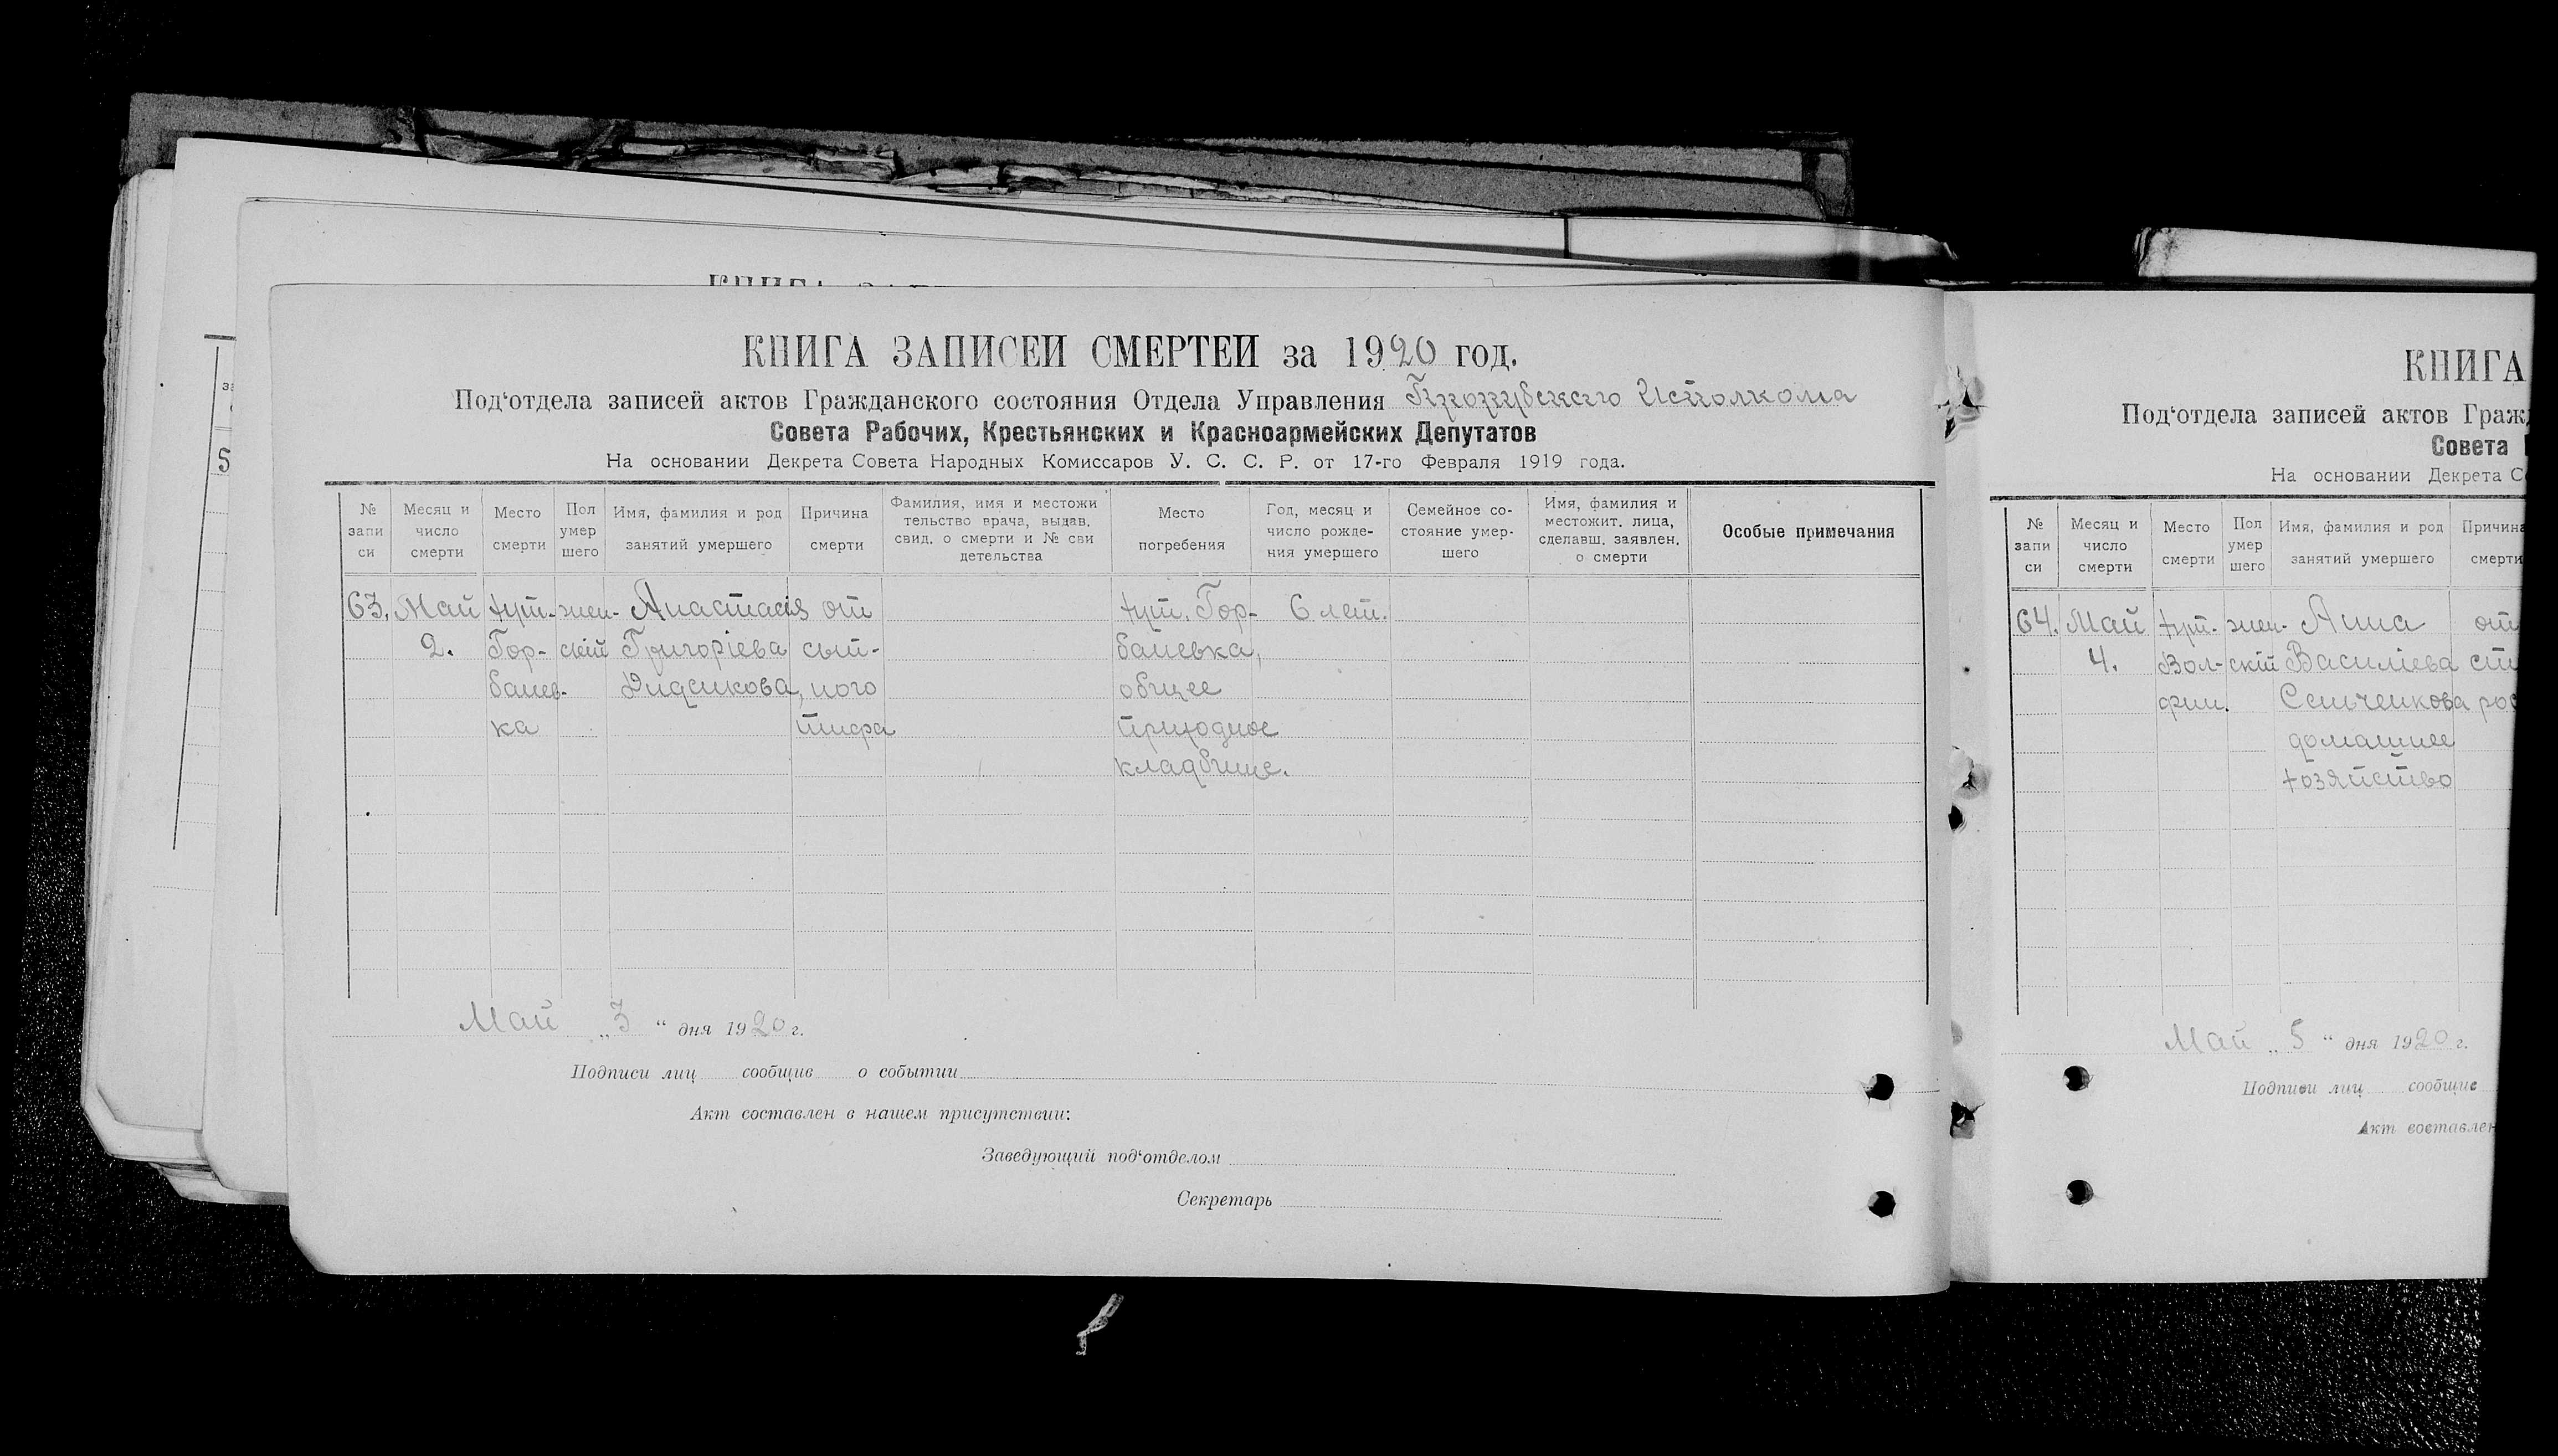 КНИГА ЗАПИСЕЙ СМЕРТЕЙ за 1920 год.
Под‘отдела записей актов Гражданского состояния Отдела Управления Исполкома
Совета Рабочих, Крестьянских и Красноармейских Депутатов
На основании Декрета Совета Народных Комиссаров У. С. С. Р. от 17-го Февраля 1919 года.
№ запи си
Месяц и число смерти
Место смерти
Пол умер шего
Имя, фамилия и род занятий умершего
Причина смерти
Фамилия, имя и местожи тельство врача, выдав. свид. о смерти и № сви детельства
Место погребения
Год, месяц и число рожде- ния умершего
Семейное со- стояние умер- шего
Имя, фамилия и местожит. лица, сделавш. заявлен. о смерти
Особые примечания
63. Май хут. жен- Анастасія от хут. Гор- 6 лет.
2. Гор- скій Григоріева сып- баневка,
банев- Дидзикова, ного общее
ка тифа приходное
кладбище.
Май „3“ дня 1920 г.
Подписи лиц сообщив о событии
Акт составлен в нашем присутствии:
Заведующий под‘отделом
Секретарь
КНИГА
Под‘отдела записей актов Гражд
Совета
На основании Декрета Со
№ запи си
Месяц и число смерти
Место смерти
Пол умер шего
Имя, фамилия и род занятий умершего
Причина смерти
64. Май хут. жен- Анна от
4. Вол- скій Василіева ст
фин. Сенченкова рос
домашнее
хозяйство
Май „5“ дня 1920 г.
Подписи лиц сообщив
Акт составлен
5